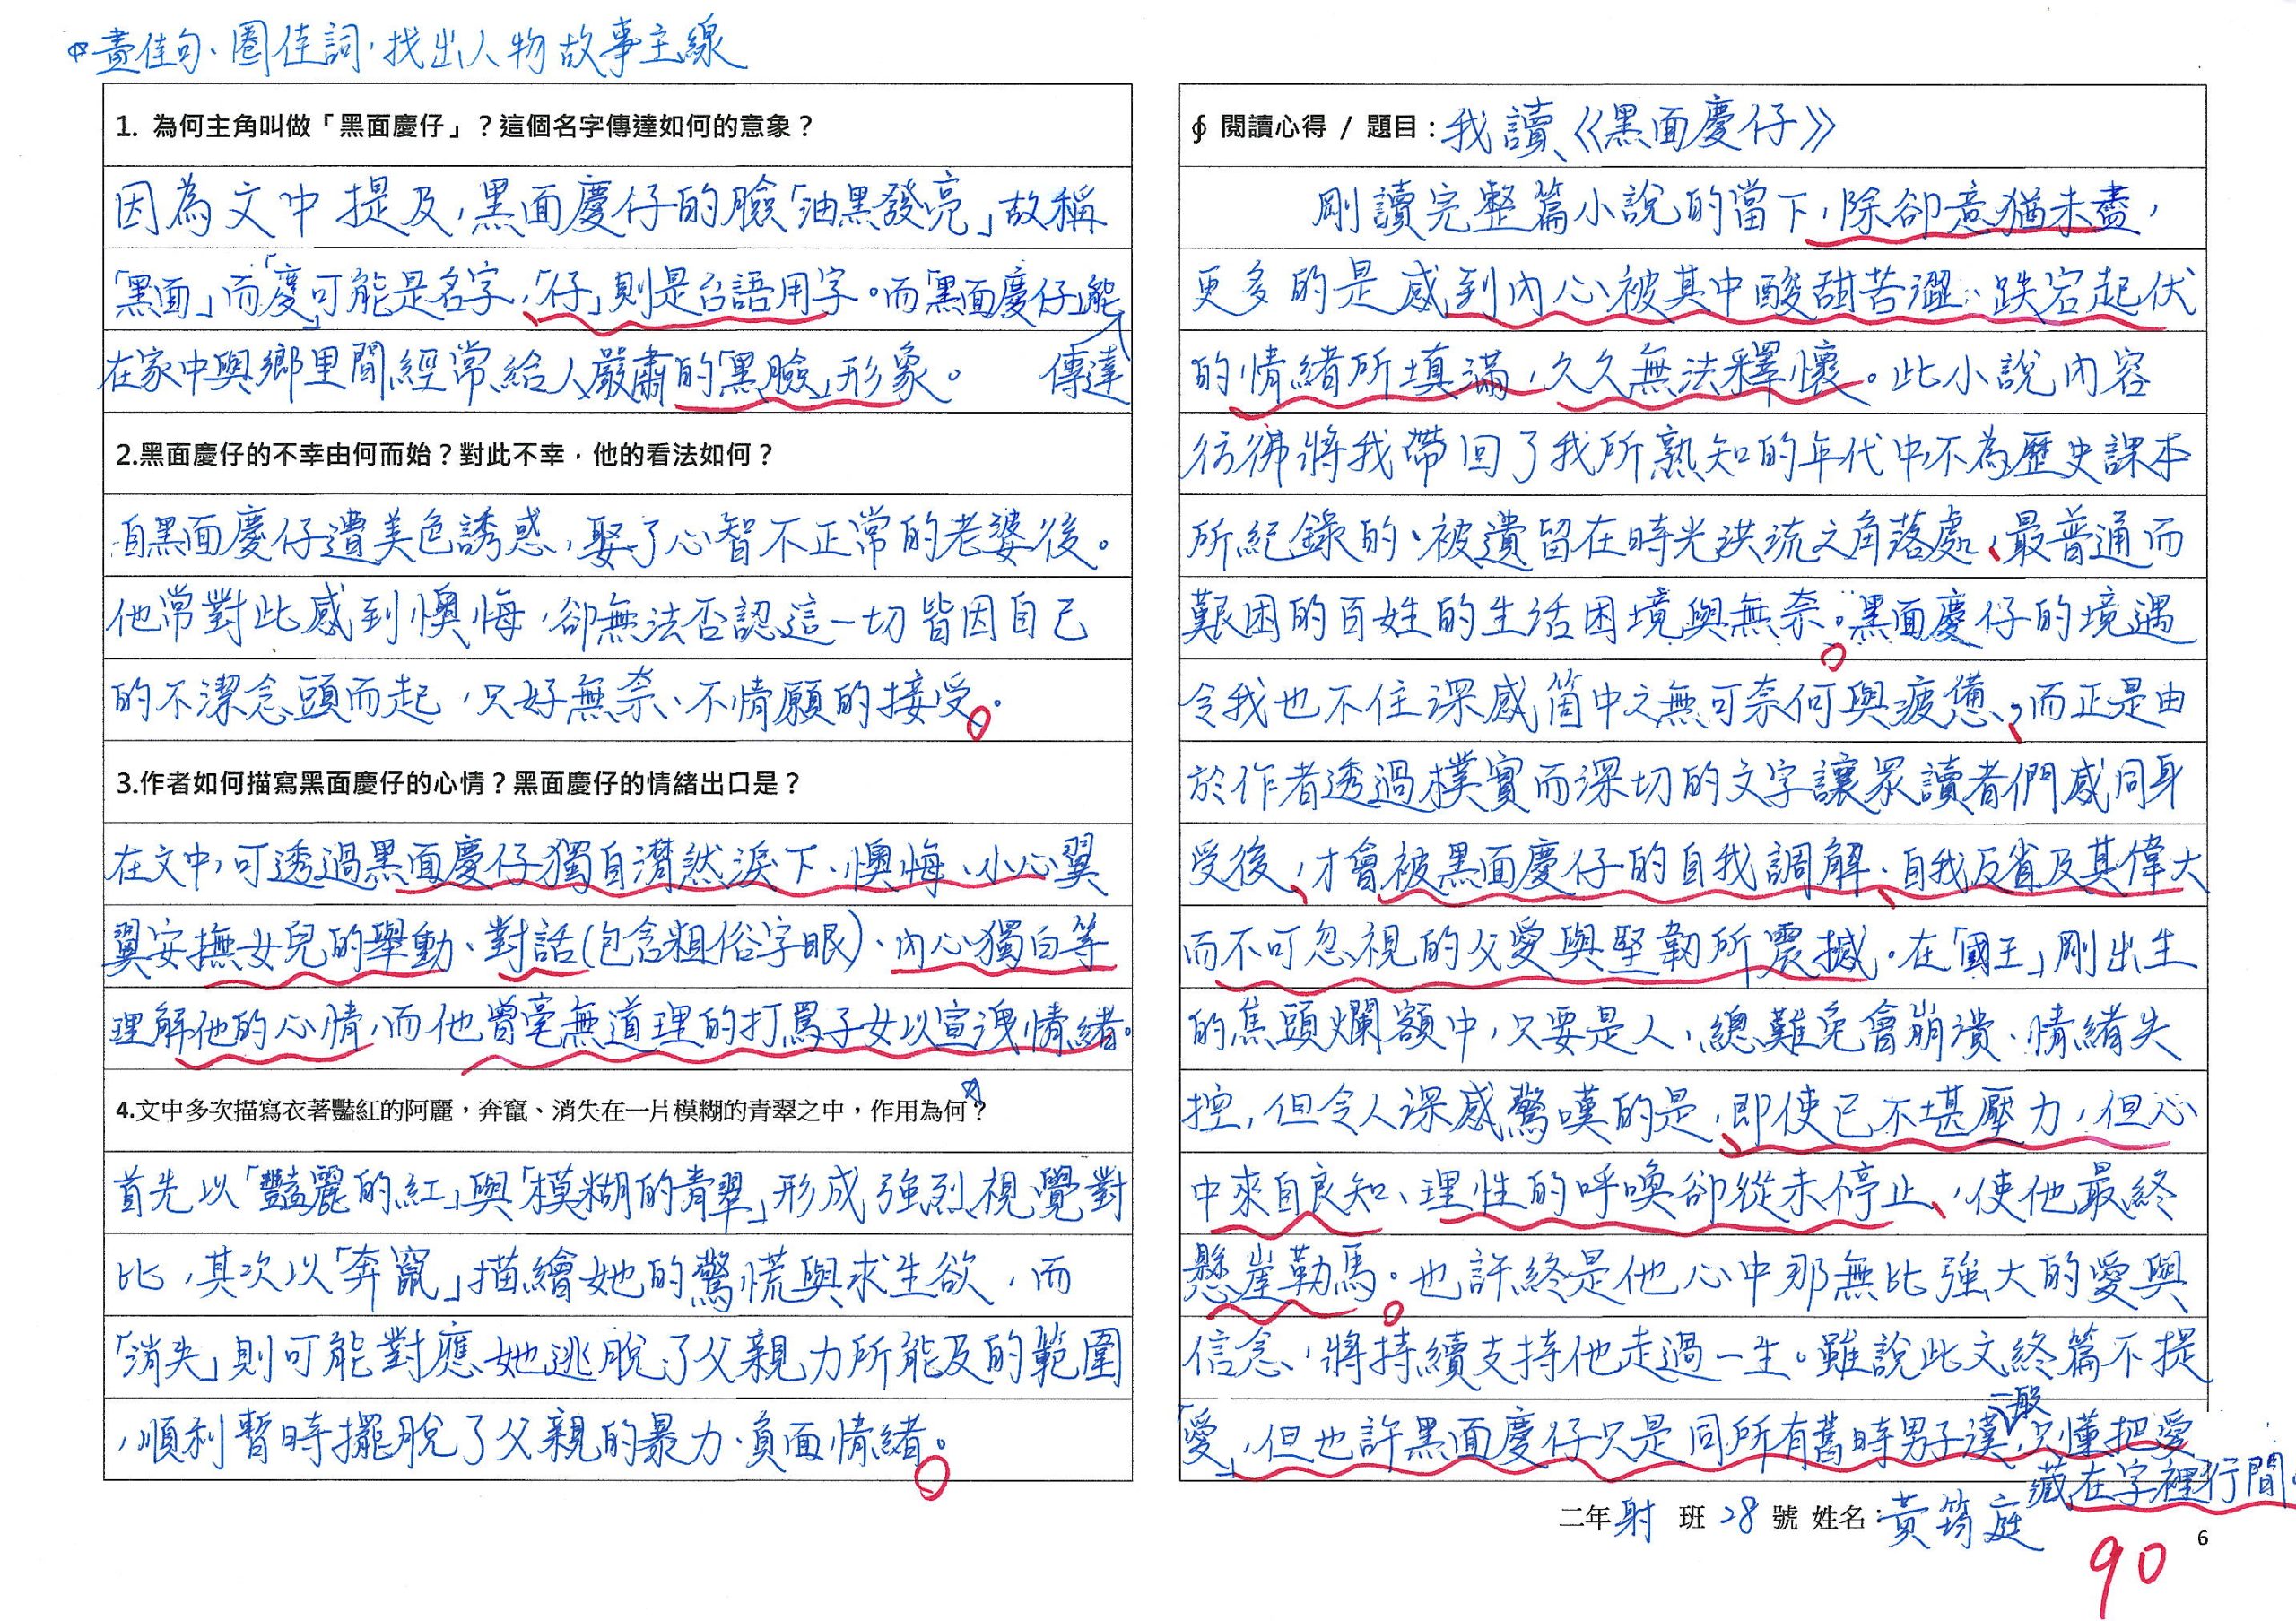 畫佳句、圈佳詞,找出人物故事主線
1. 為何主角叫做「黑面慶仔」？這個名字傳達如何的意象？
因為文中提及,黑面慶仔的臉「油黑發亮」故稱
「黑面」而「慶」可能是名字,「仔」則是台語用字。而「黑面慶仔」能傳達
在家中與鄉里間經常給人嚴肅的「黑臉」形象。
2.黑面慶仔的不幸由何而始？對此不幸，他的看法如何？
自黑面慶仔遭美色誘惑,娶了心智不正常的老婆後。
他常對此感到懊悔,卻無法否認這一切皆因自己
的不潔念頭而起,只好無奈、不情願的接受。
3.作者如何描寫黑面慶仔的心情？黑面慶仔的情緒出口是？
在文中,可透過黑面慶仔獨自潸然淚下、懊悔、小心翼
翼安撫女兒的舉動、對話(包含粗俗字眼)、內心獨白等
理解他的心情,而他曾毫無道理的打罵子女以宣洩情緒。
4.文中多次描寫衣著豔紅的阿麗，奔竄、消失在一片模糊的青翠之中，作用為何？
首先以「豔麗的紅」與「模糊的青翠」形成強烈視覺對
比,其次以「奔竄」描繪她的驚慌與求生欲,而
「消失」則可能對應她逃脫了父親力所能及的範圍
,順利暫時擺脫了父親的暴力、負面情緒。
∮ 閱讀心得 / 題目：我讀《黑面慶仔》
剛讀完整篇小說的當下,除卻意猶未盡,
更多的是感到內心被其中酸甜苦澀、跌宕起伏
的情緒所填滿,久久無法釋懷。此小說內容
彷彿將我帶回了我所熟知的年代中,不為歷史課本
所紀錄的、被遺留在時光洪流之角落處、最普通而
艱困的百姓的生活困境與無奈。黑面慶仔的境遇
令我也不住深感箇中之無可奈何與疲憊,而正是由
於作者透過樸實而深切的文字讓眾讀者們感同身
受後,才會被黑面慶仔的自我調解、自我反省及其偉大
而不可忽視的父愛與堅韌所震撼。在「國王」剛出生
的焦頭爛額中,只要是人,總難免會崩潰、情緒失
控,但令人深感驚嘆的是,即使已不堪壓力,但心
中來自良知、理性的呼喚卻從未停止,使他最終
懸崖勒馬。也許終是他心中那無比強大的愛與
信念,將持續支持他走過一生。雖說此文終篇不提
「愛」,但也許黑面慶仔只是同所有舊時男子漢一般,只懂把愛
藏在字裡行間。
二年 射 班 28 號 姓名：黃筠庭
6
90